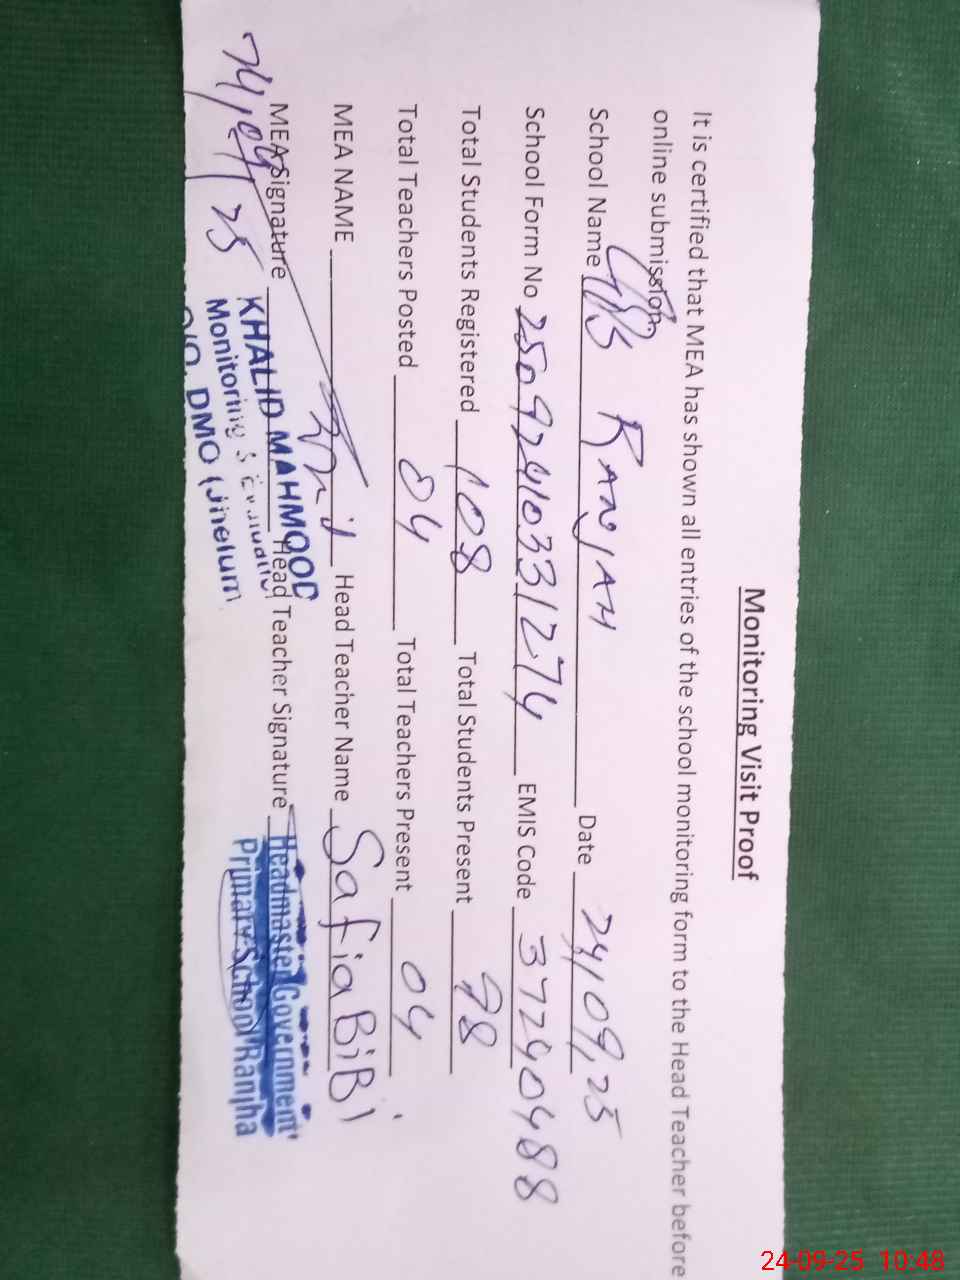 Monitoring Visit Proof
It is certified that MEA has shown all entries of the school monitoring form to the Head Teacher before
online submission.
School Name GPS RANJAH Date 24,09,25
School Form No 25092410331274 EMIS Code 37240488
Total Students Registered 108 Total Students Present 98
Total Teachers Posted 04 Total Teachers Present 04
MEA NAME Head Teacher Name Safia BiBi
MEA Signature Head Teacher Signature
24/09/25
KHALID MAHMOOD
Monitoring &
O/O. DMO (Jhelum
Headmaster Government
Primary School Ranjha
24-09-25 10:48